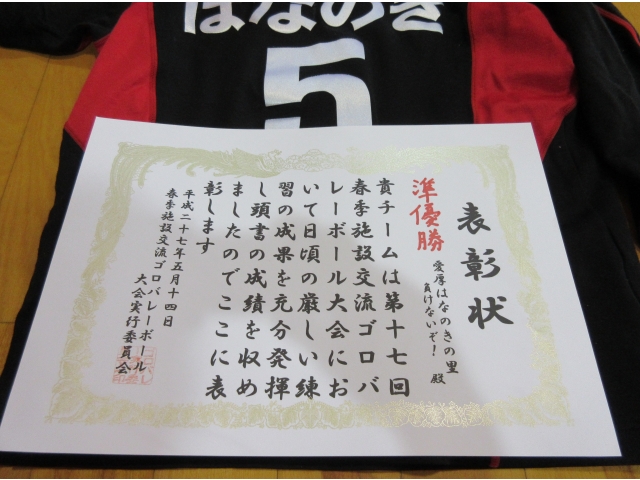 はなのき
5
表彰状
準優勝
愛厚はなのきの里
負けないぞ！
殿
貴チームは第十七回
春季施設交流ゴロバ
レーボール大会にお
いて日頃の厳しい練
習の成果を充分発揮
し頭書の成績を収め
ましたのでここに表
彰します
平成二十七年五月十四日
春季施設交流ゴロバレーボール
大会実行委員会